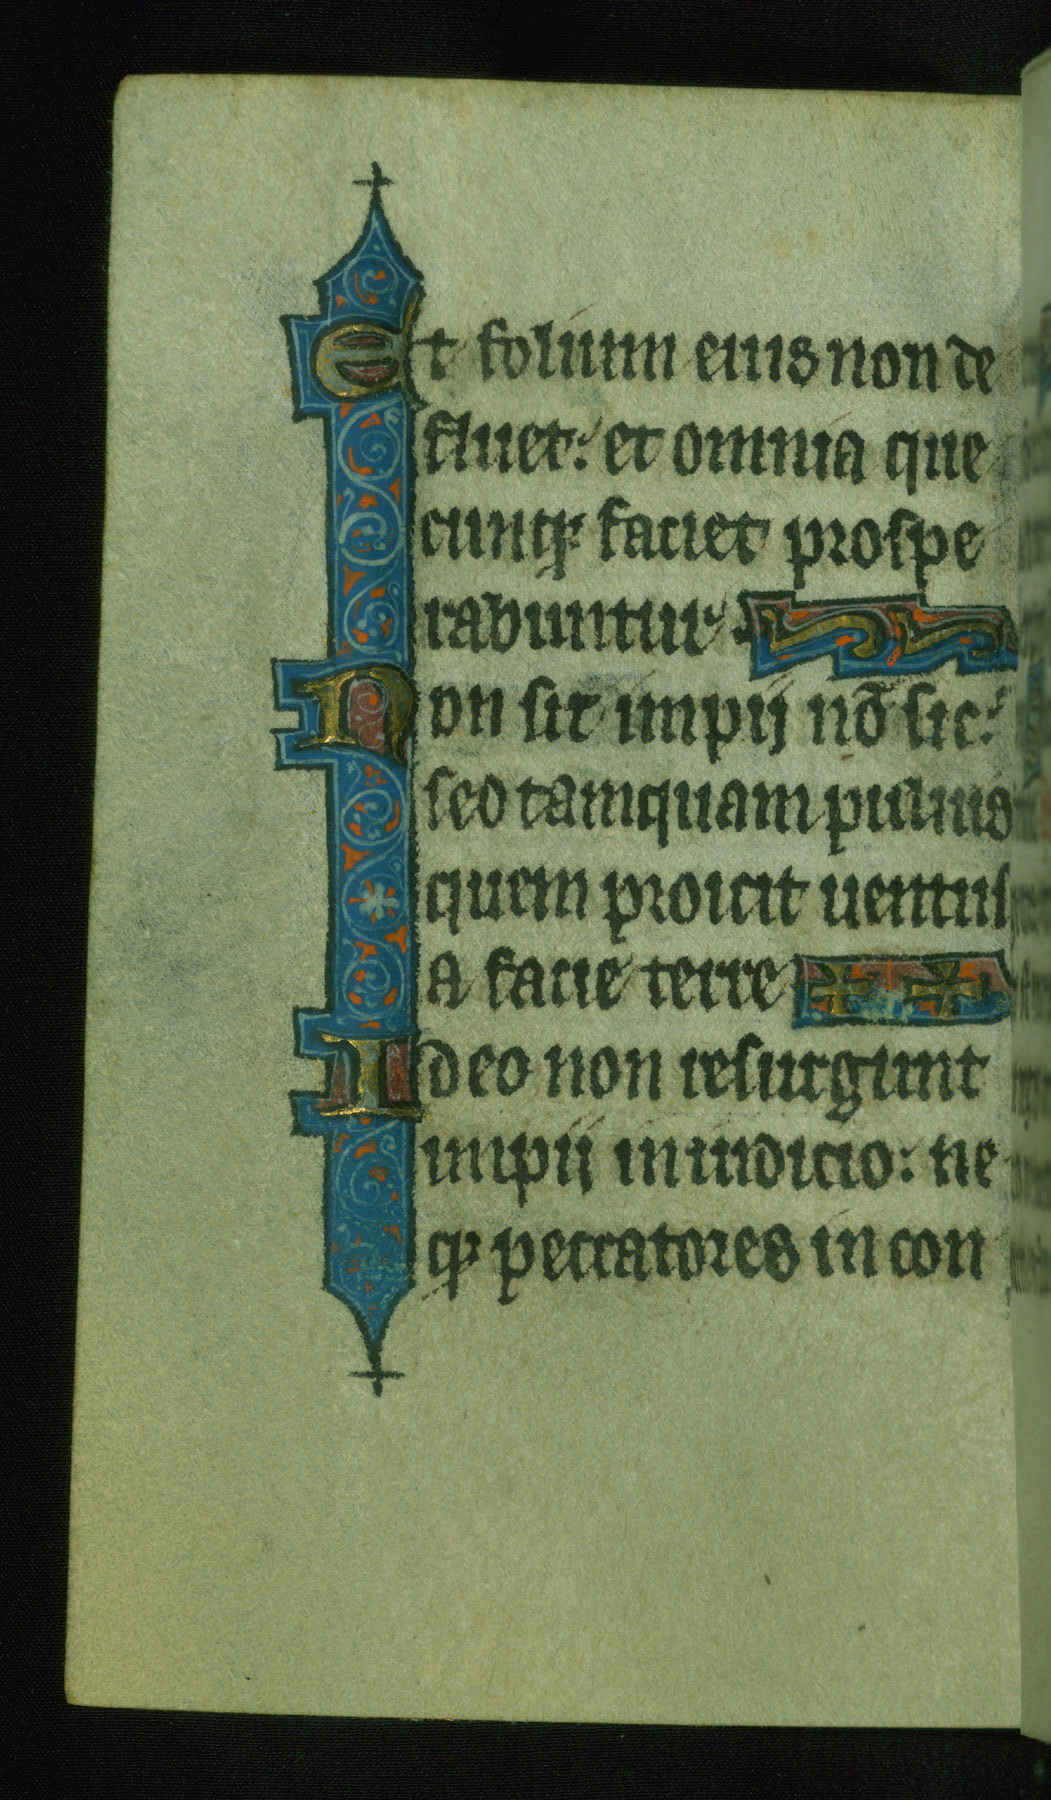 Et folium eius non de
fluet: et omnia que
cunq; faciet prospe
rabuntur.
Non sic impij nō sic:
sed tamquam puluis
quem proicit uentus
a facie terre
Ideo non resurgunt
impij in iudicio: ne
qꝫ peccatores in con